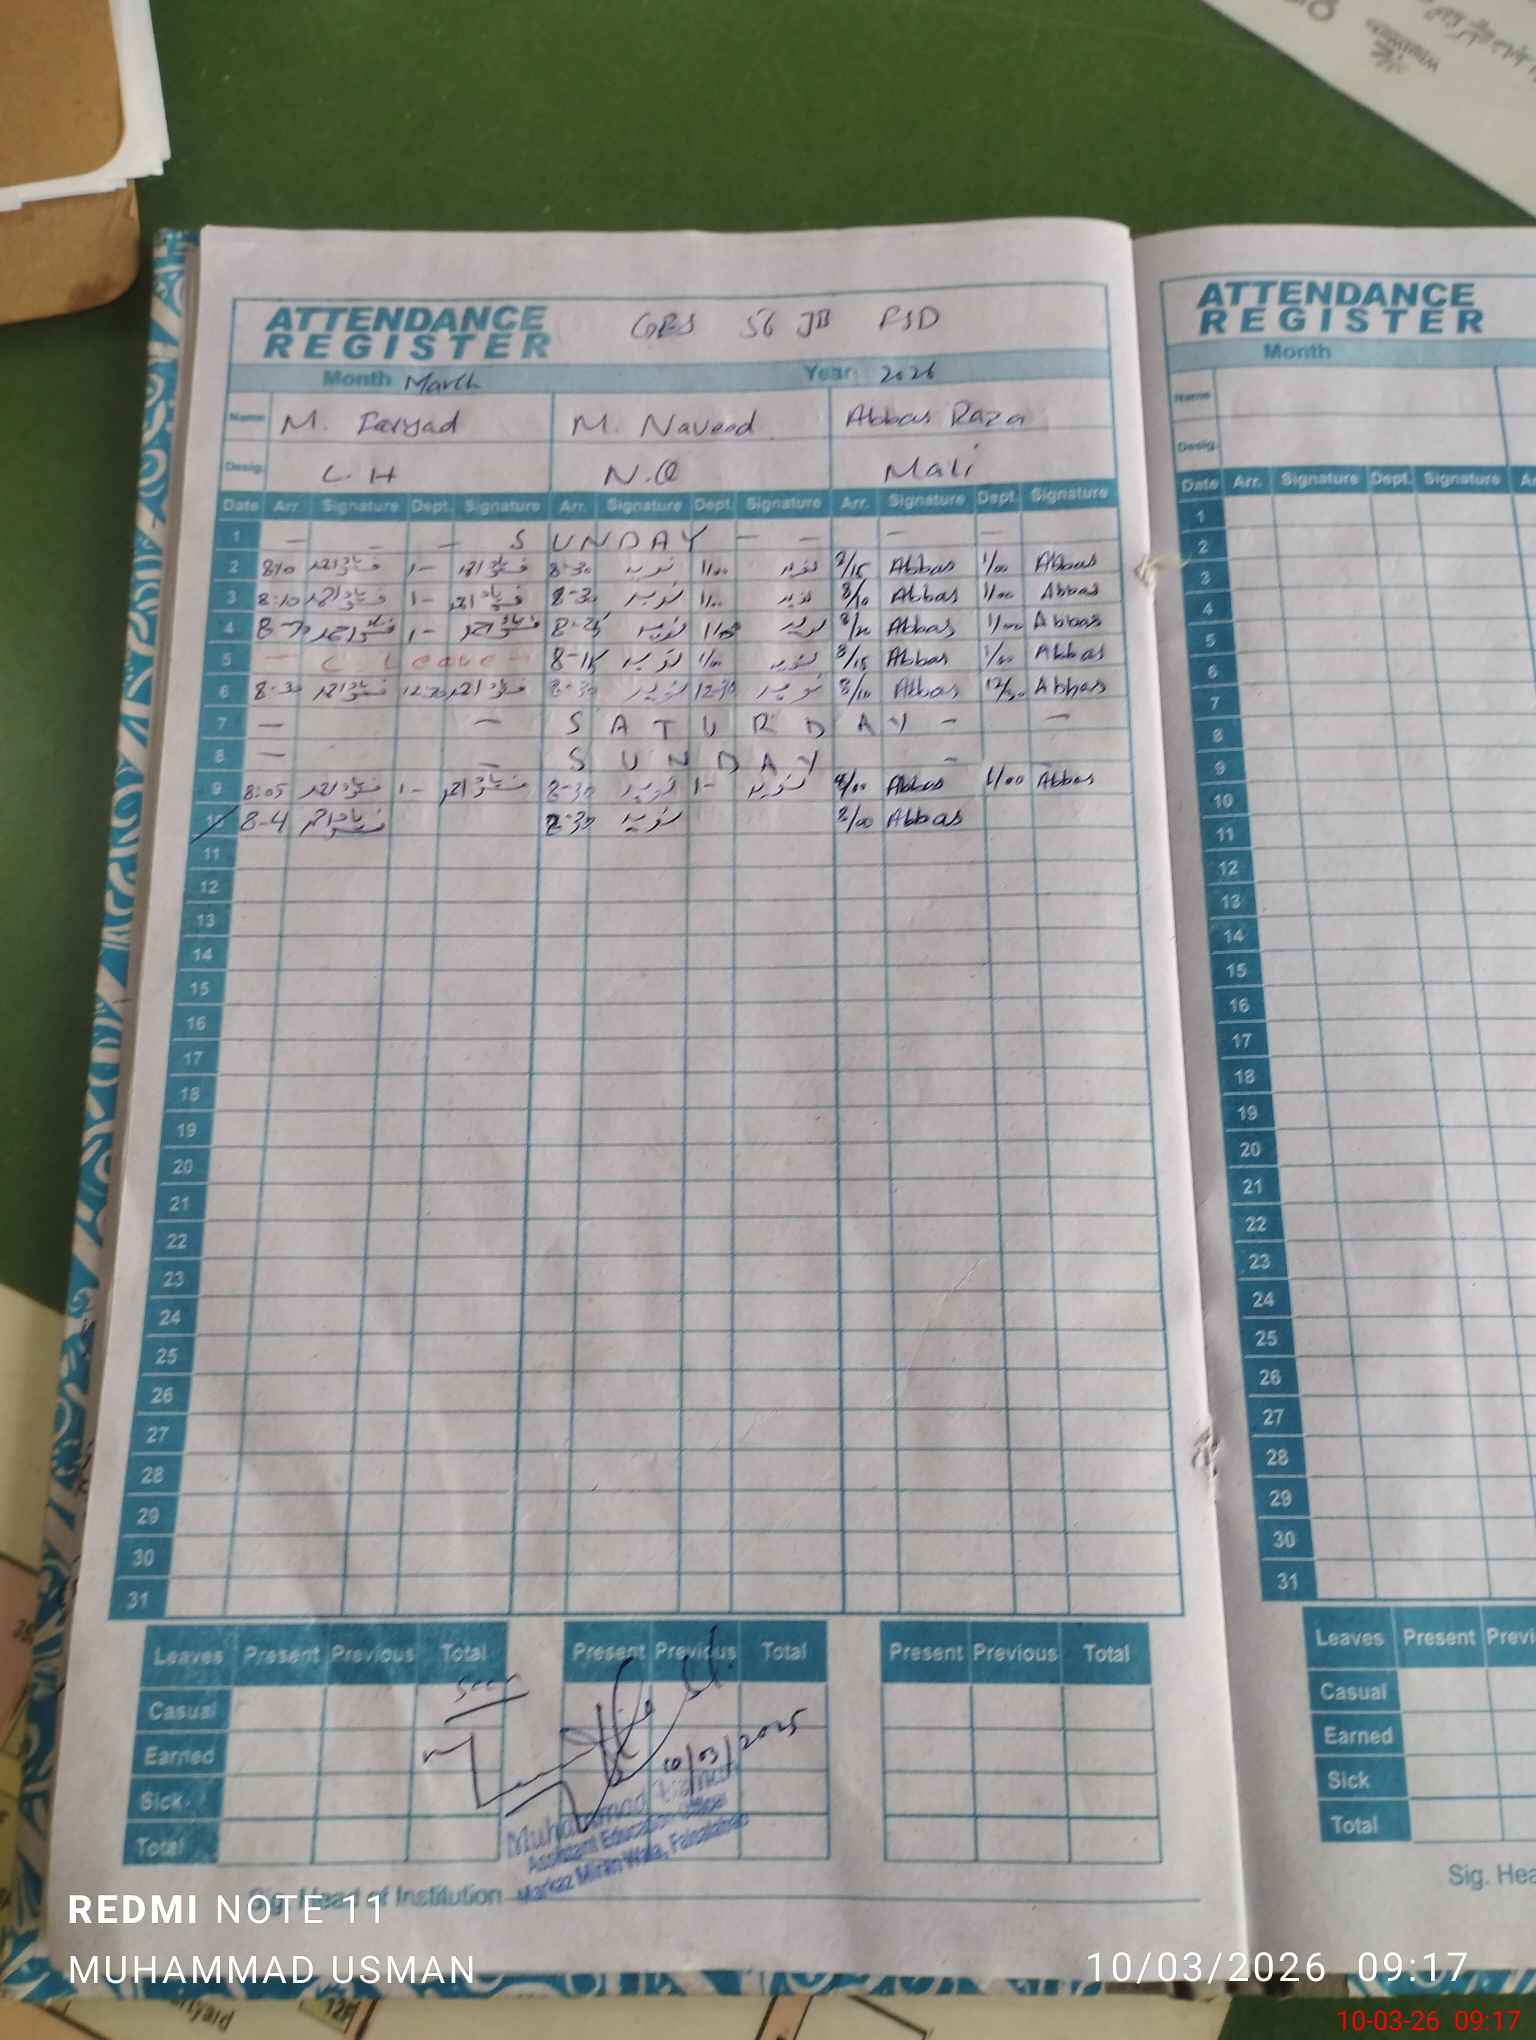 ATTENDANCE
REGISTER
GES 56 JB FSD
Month March Year 2026
Name M. Faryad M. Naveed Abbas Raza
Desig. L.H N.Q Mali
Date Arr. Signature Dept. Signature Arr. Signature Dept. Signature Arr. Signature Dept. Signature
1 — — — SUNDAY — — — —
2 8:10 1- 8-30 نوید 1/00 نوید 8/15 Abbas 1/00 Abbas
3 8:10 1- 8-30 نوید 1/00 نوید 8/10 Abbas 1/00 Abbas
4 1- 8-25 نوید 1/00 نوید 8/20 Abbas 1/00 Abbas
5 — C Leave — 8-15 نوید 1/00 نوید 8/15 Abbas 1/00 Abbas
6 8-30 12:30 8-30 نوید 12-30 نوید 8/10 Abbas 12/30 Abbas
7 — — SATURDAY — —
8 — — SUNDAY —
9 8:05 1- 8-30 نوید 1- نوید 8/00 Abbas 1/00 Abbas
10 8-4 8-30 نوید 8/00 Abbas
11
12
13
14
15
16
17
18
19
20
21
22
23
24
25
26
27
28
29
30
31
Leaves Present Previous Total Present Previous Total Present Previous Total
Casual
Earned
Sick
Total
Seen
10/03/2025
Muhammad Usman
Assistant Education Officer
Markaz Miran Wala, Faisalabad
Sig. Head of Institution
ATTENDANCE
REGISTER
Month
Name
Desig.
Date Arr. Signature Dept. Signature
1
2
3
4
5
6
7
8
9
10
11
12
13
14
15
16
17
18
19
20
21
22
23
24
25
26
27
28
29
30
31
Leaves Present
Casual
Earned
Sick
Total
Sig.
REDMI NOTE 11
MUHAMMAD USMAN
10/03/2026 09:17
10-03-26 09:17